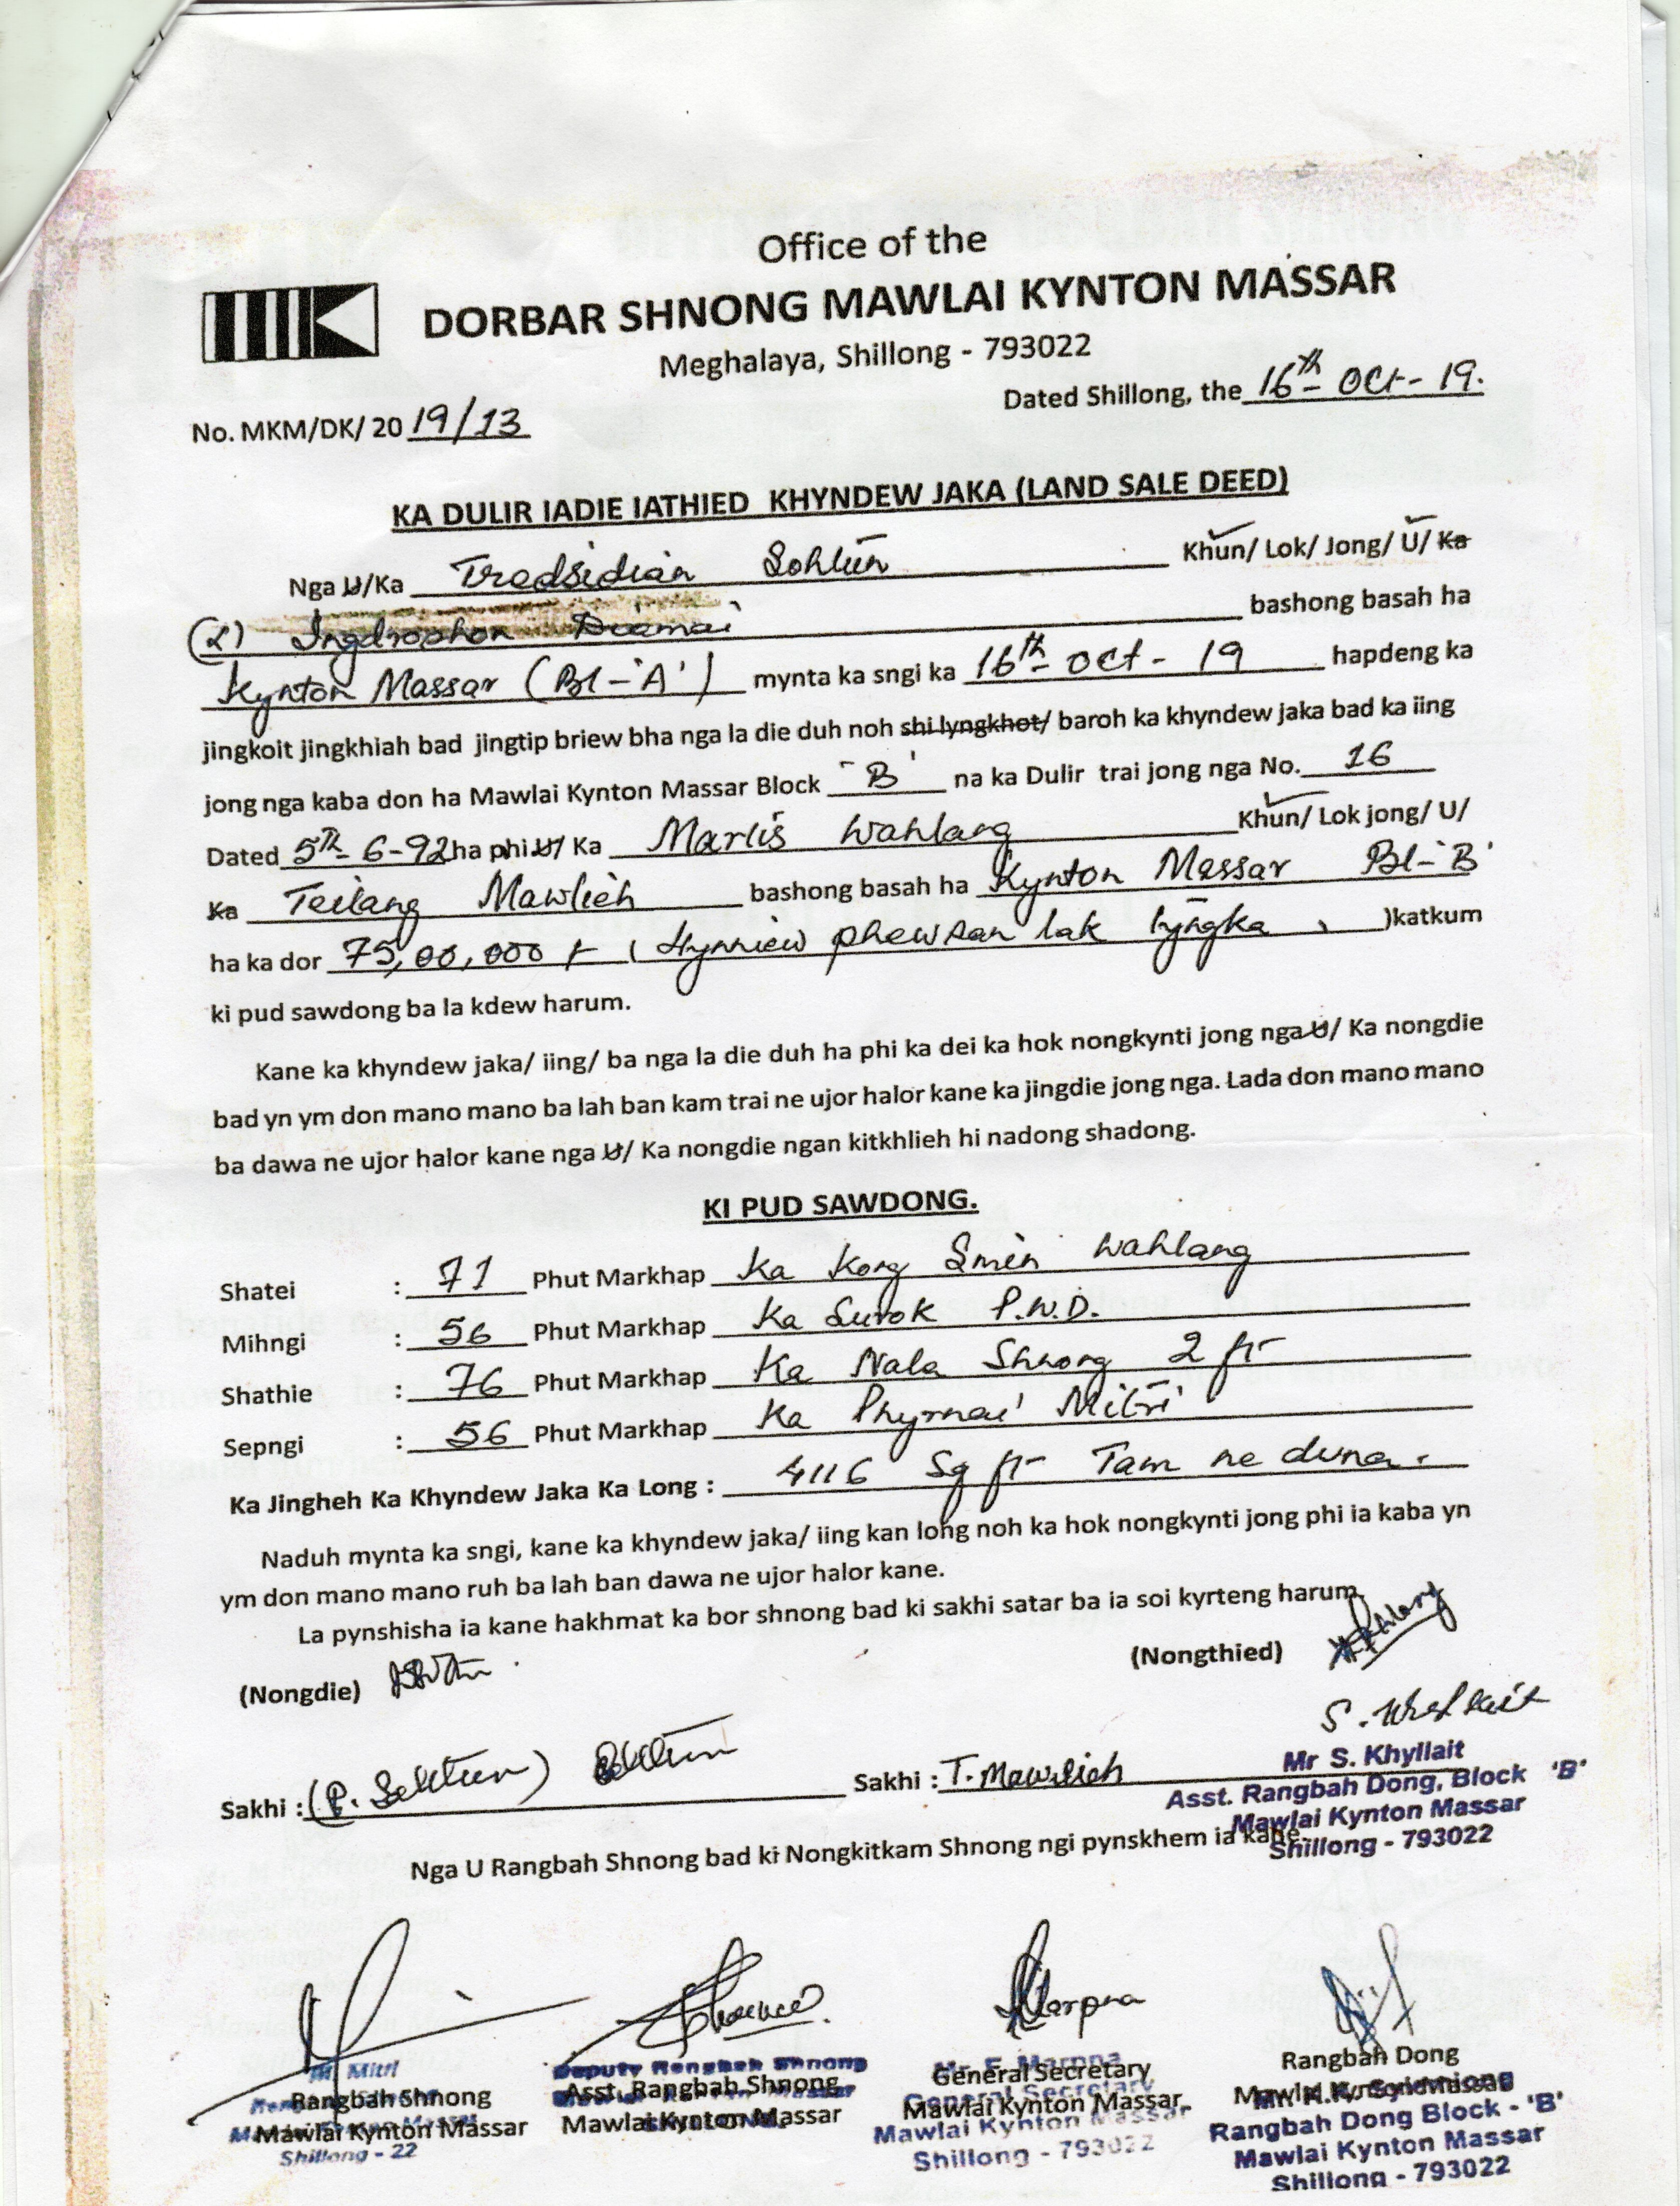 Office of the
DORBAR SHNONG MAWLAI KYNTON MASSAR
Meghalaya, Shillong - 793022
Dated Shillong, the 16th - Oct - 19.
No. MKM/DK/ 20 19/13
KA DULIR IADIE IATHIED KHYNDEW JAKA (LAND SALE DEED)
Nga U/Ka Tredsidian Sohtun Khun/ Lok/ Jong/ U/ Ka
(L) Ingdrophon bashong basah ha
Kynton Massar (Bl-'A') mynta ka sngi ka 16th - Oct - 19 hapdeng ka
jingkoit jingkhiah bad jingtip briew bha nga la die duh noh shi lyngkhot/ baroh ka khyndew jaka bad ka iing
jong nga kaba don ha Mawlai Kynton Massar Block 'B' na ka Dulir trai jong nga No. 16
Dated 5th - 6-92 ha phi U/ Ka Marlis Wahlang Khun/ Lok jong/ U/
Ka Teilang Mawlieh bashong basah ha Kynton Massar Bl-'B'
ha ka dor 75,00,000/- (Hynniew phewsan lak tyngka )katkum
ki pud sawdong ba la kdew harum.
Kane ka khyndew jaka/ iing/ ba nga la die duh ha phi ka dei ka hok nongkynti jong nga U/ Ka nongdie
bad yn ym don mano mano ba lah ban kam trai ne ujor halor kane ka jingdie jong nga. Lada don mano mano
ba dawa ne ujor halor kane nga U/ Ka nongdie ngan kitkhlieh hi nadong shadong.
KI PUD SAWDONG.
Shatei : 71 Phut Markhap Ka Kong Smen Wahlang
Mihngi : 56 Phut Markhap Ka Surok P.W.D.
Shathie : 76 Phut Markhap Ka Nala Shnong 2 ft
Sepngi : 56 Phut Markhap Ka Phyrnai Mitri
Ka Jingheh Ka Khyndew Jaka Ka Long : 4116 Sq ft Tam ne duna.
Naduh mynta ka sngi, kane ka khyndew jaka/ iing kan long noh ka hok nongkynti jong phi ia kaba yn
ym don mano mano ruh ba lah ban dawa ne ujor halor kane.
La pynshisha ia kane hakhmat ka bor shnong bad ki sakhi satar ba ia soi kyrteng harum
(Nongdie) (Nongthied)
S. Khyllait
Mr S. Khyllait
Asst. Rangbah Dong, Block 'B'
Mawlai Kynton Massar
Shillong - 793022
Sakhi : (P. Sohtun) Sohtun Sakhi : T. Mawlieh
Nga U Rangbah Shnong bad ki Nongkitkam Shnong ngi pynskhem ia kane.
M. Mitri
Rangbah Shnong
Mawlai Kynton Massar
Shillong - 22
Deputy Rangbah Shnong
Asst. Rangbah Shnong
Mawlai Kynton Massar
Marpna
Mr. F. Marpna
General Secretary
General Secretary
Mawlai Kynton Massar
Mawlai Kynton Massar
Shillong - 793022
Rangbah Dong
Mawlai Kynton Massar
Rangbah Dong Block - 'B'
Mawlai Kynton Massar
Shillong - 793022